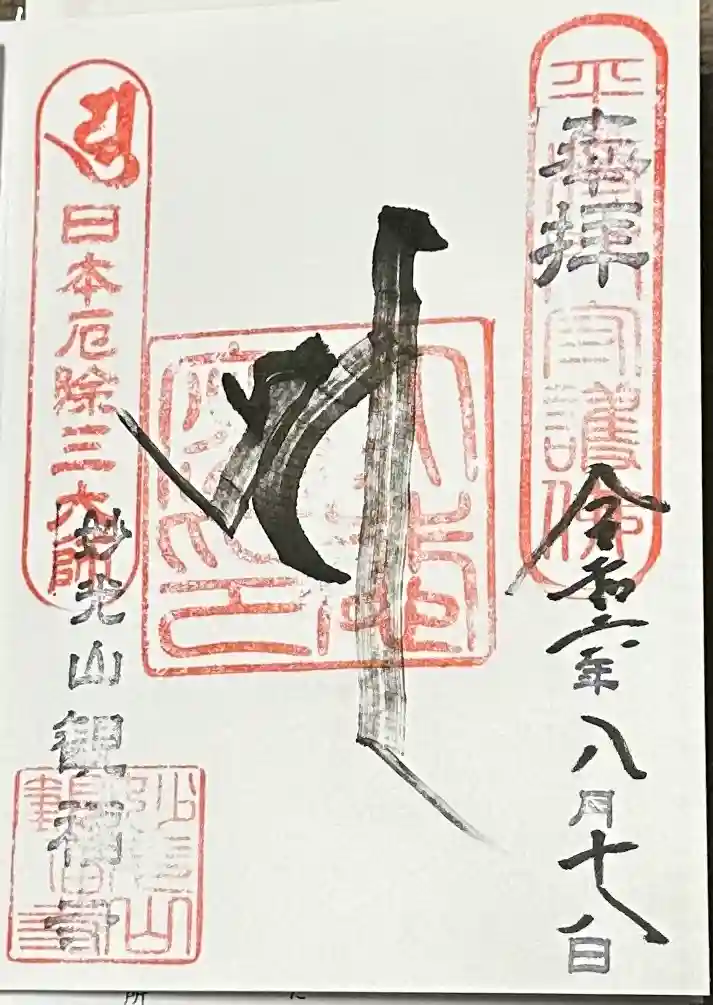 平將門守護佛
奉拝
令和六年八月十八日
日本厄除三大師
妙光山観福寺